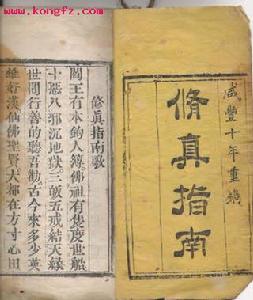 www.kongfz.com
咸豐十年重鐫
脩真指南
修真指南歌
閻王有本鈎人簿佛祖有隻慶世船
十惡八邪沉地獄三皈五戒結天緣
世間行善的聽吾勸古今來多少英
雄好漢仙佛聖賢大都在方寸心田